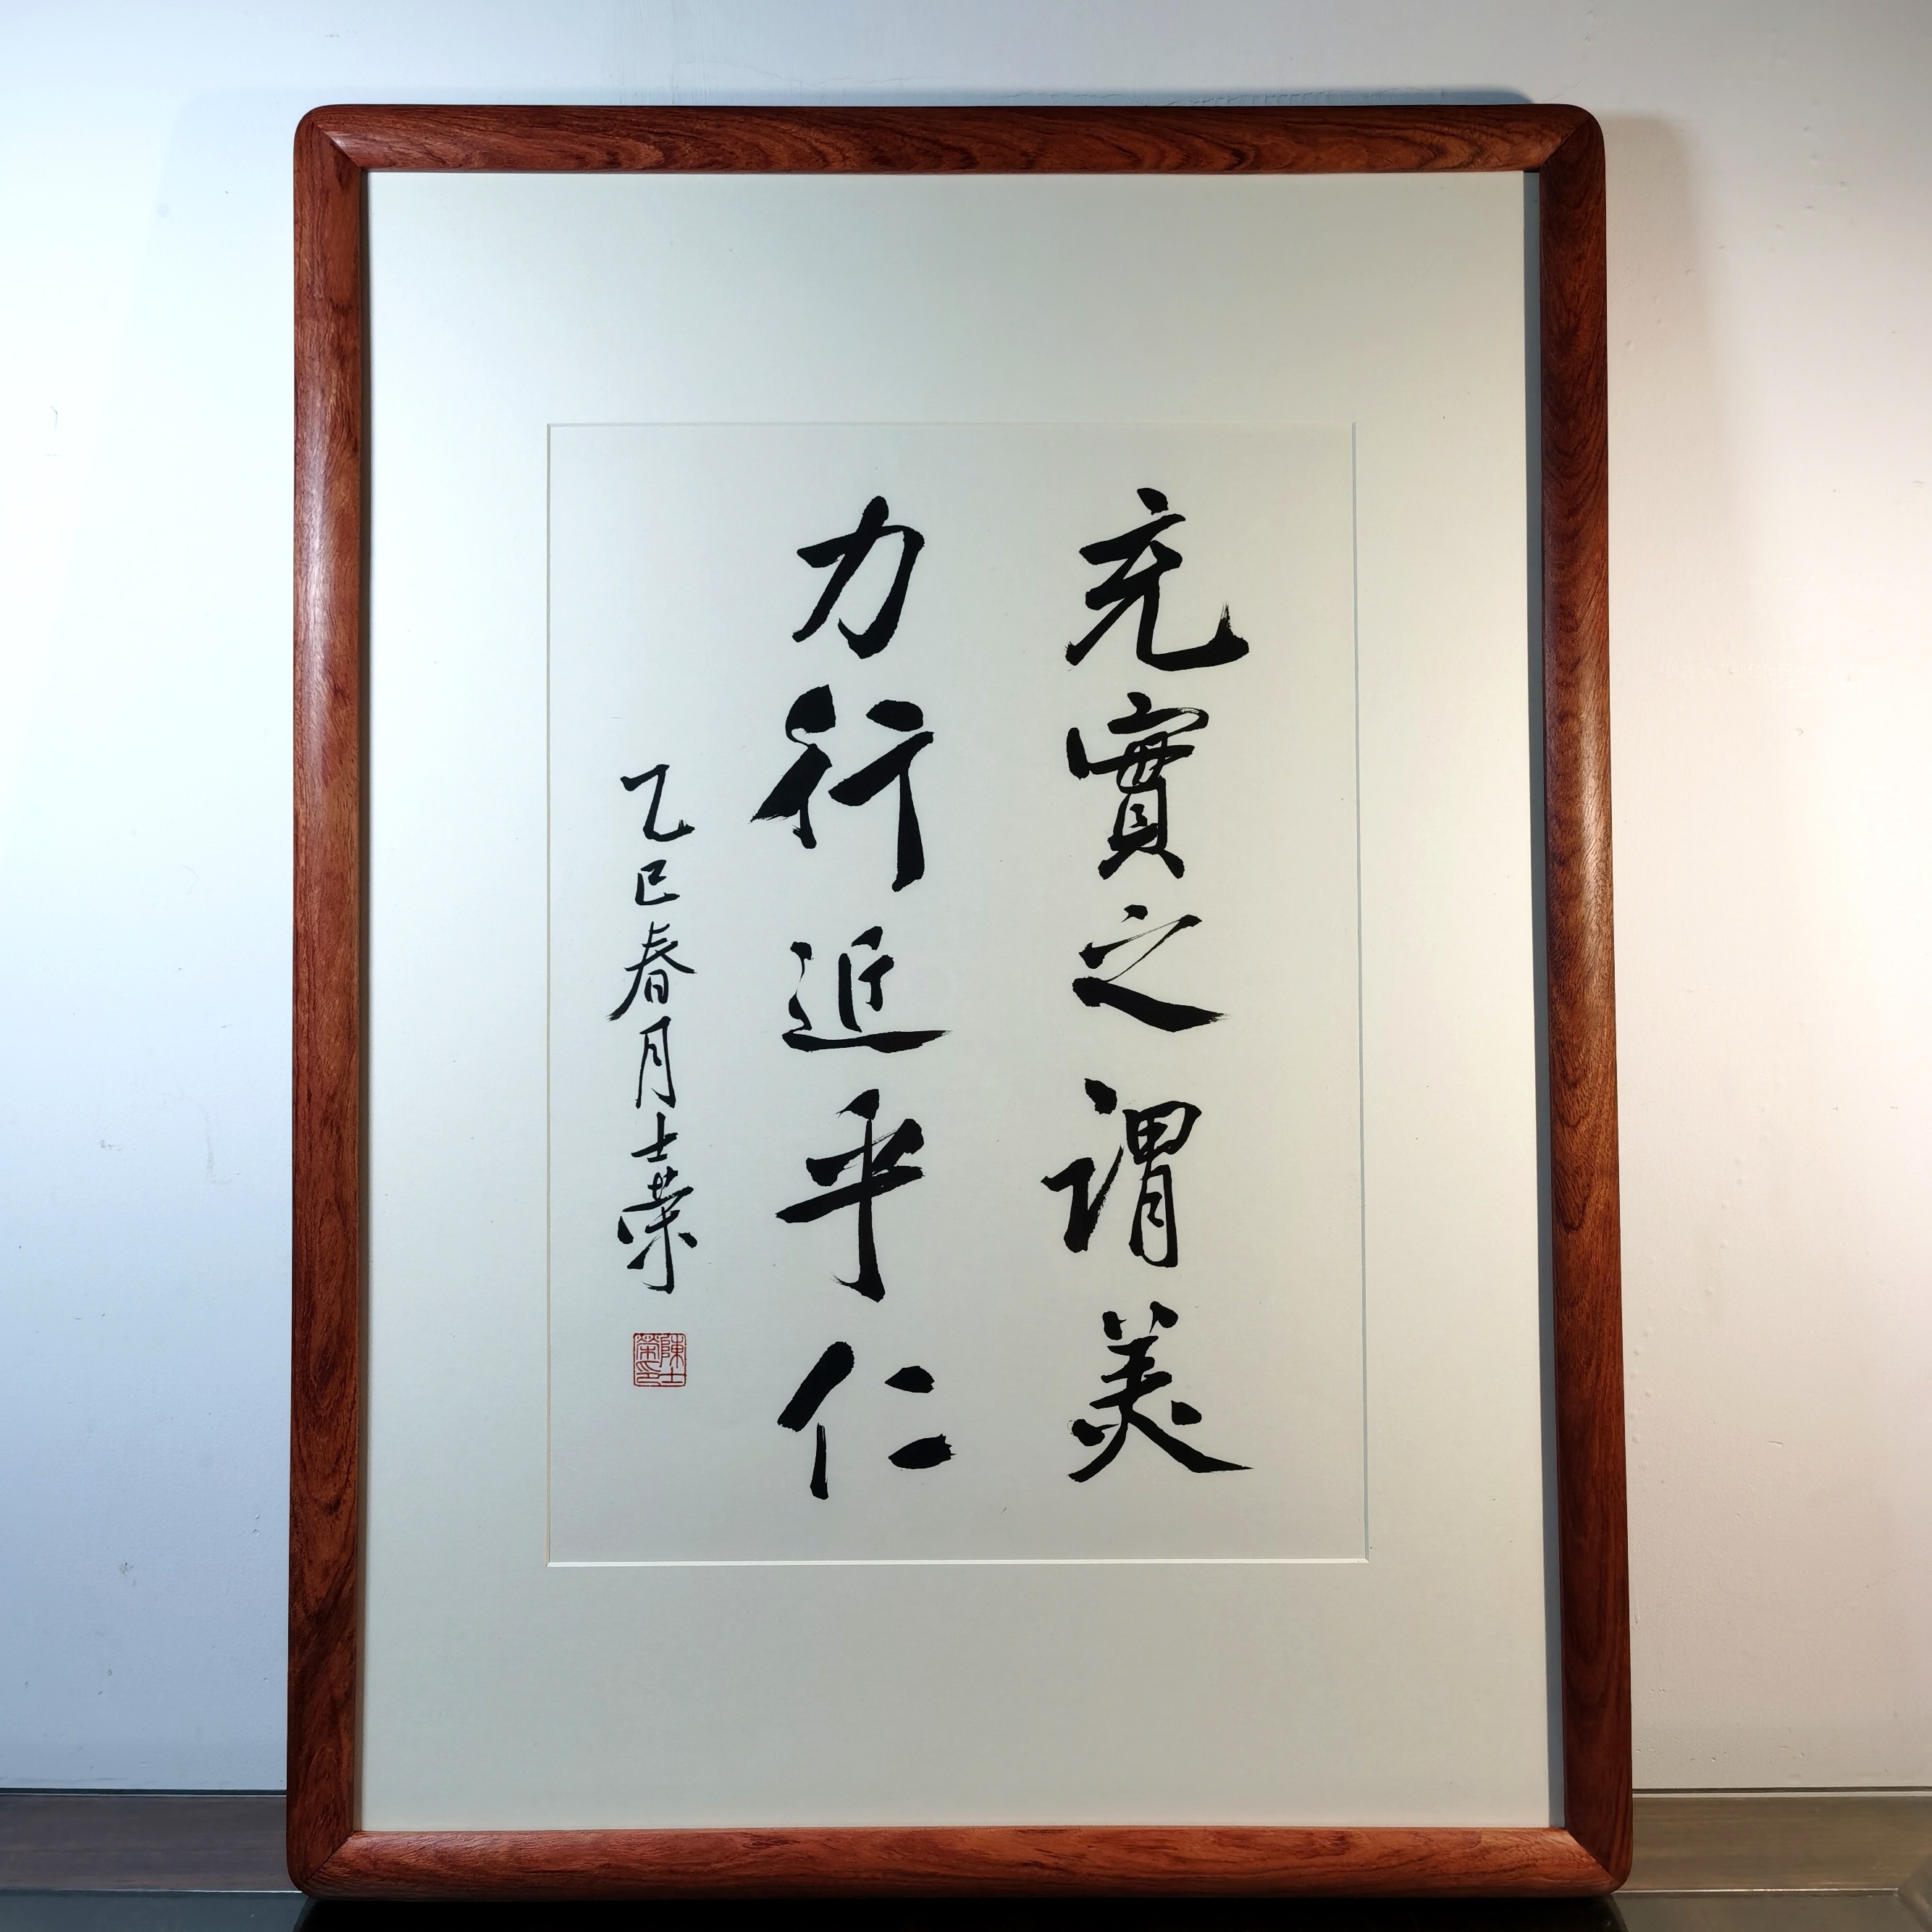 充實之谓美
力行近乎仁
乙巳春月士荣
陳士榮印